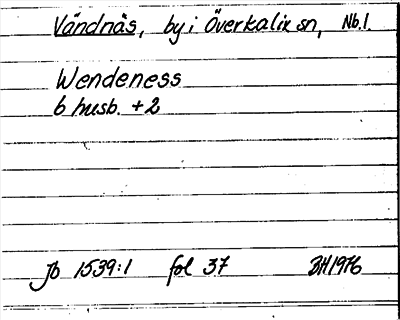 Vändnäs, by i Överkalix sn, Nb.l.
Wendeness
6 husb. +2
Jb 1539:1 fol 37 BH1976